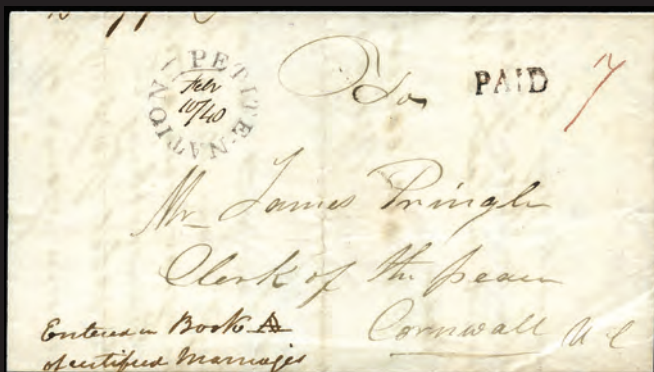 PETITE-NATION
Feb
10/40
To
PAID 7
Mr James Pringle
Clerk of the peace
Cornwall U C
Entered in Book A
of certified Marriages